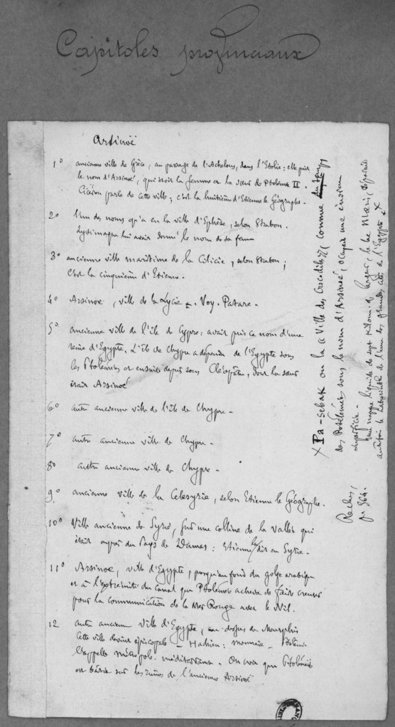 Capitoles provinciaux
Arsinoë
1° ancienne ville de Grèce, au passage de l'Achelous, dans l'Etolie; elle prit
le nom d'Arsinoé, qui était la femme et la sœur de Ptolémée II.
Cicéron parle de cette ville; c'est la huitième d'Etienne le géographe.
2° L'un des noms qu'a eu la ville d'Ephèse, selon Strabon.
Lysimaque lui avait donné le nom de sa femme
3° ancienne ville maritime de la Cilicie, selon Strabon;
C'est la cinquième d'Etienne.
4° Arsinoe, ville de la Lycie. Voy. Patare.
5° Ancienne ville de l'île de Cypre, avait pris ce nom d'une
reine d'Egypte. L'île de Chypre a dépendu de l'Egypte sous
les Ptolémées et ensuite depuis sous Cléopâtre, dont la sœur
était Arsinoé
6° autre ancienne ville de l'île de Chypre.
7° autre ancienne ville de Chypre.
8° autre ancienne ville de Chypre.
9° ancienne ville de la Celesyrie, selon Etienne le Géographe.
10° Ville ancienne de Syrie, sur une colline de la vallée qui
était auprès du Pays de Damas: Etienne dit en Syrie.
11° Arsinoe, ville d'Egypte, presqu'au fond du golfe arabique
et à l'extrémité du canal que Ptolémée acheva de faire creuser
pour la communication de la Mer Rouge avec le Nil.
12 autre ancienne ville d'Egypte, au-dessus de Memphis
Cette ville devint épiscopale. Hadrien: monnaie. Ptolémée
l'appelle métropole méditerranée. On croit que
est bâtie sur les ruines de l'ancienne Arsinoé
X Pa-sebak ou la Ville des Crocodiles, connue
des Ptolémées sous le nom d'Arsinoé, occupait une
superficie.